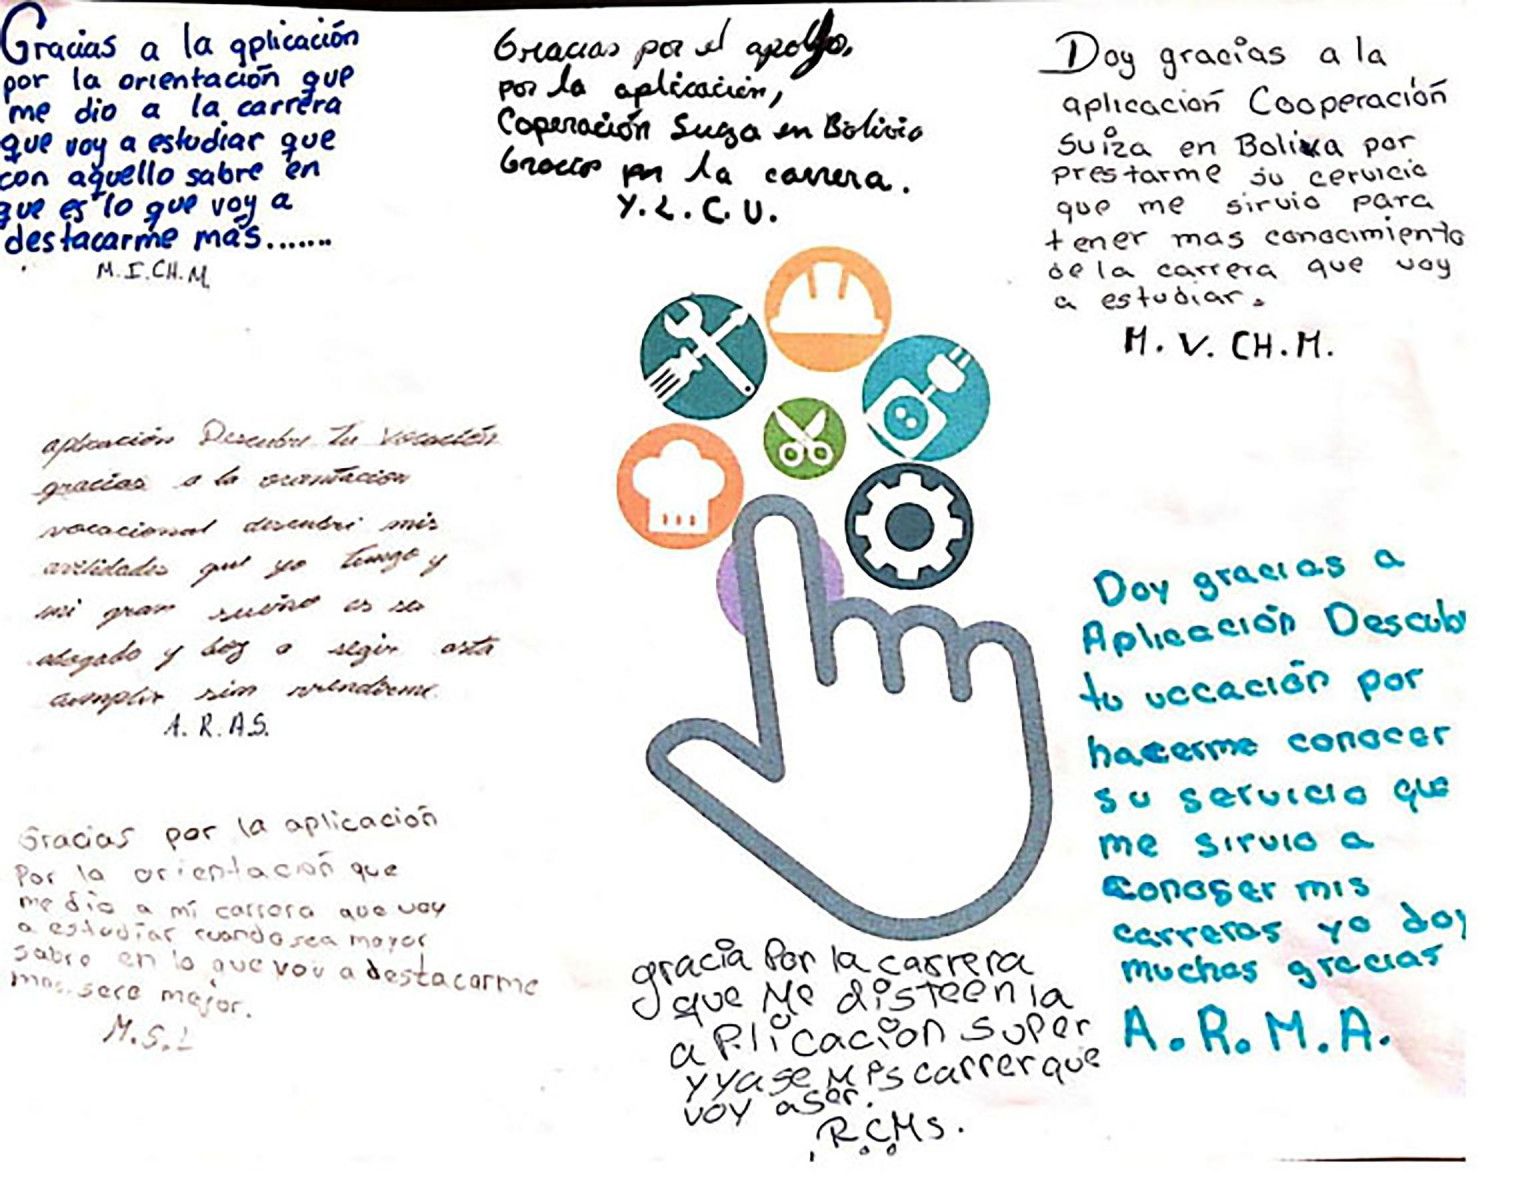 Gracias a la aplicación
por la orientación que
me dio a la carrera
que voy a estudiar que
con aquello sabre en
que es lo que voy a
destacarme más.......
M.I.CH.M.
Gracias por el apollo,
por la aplicación,
Coperación Suiza en Bolivia
Gracias por la carrera.
Y.L.C.U.
Doy gracias a la
aplicación Cooperación
Suiza en Bolivia por
prestarme su cervicio
que me sirvio para
tener mas conocimiento
de la carrera que voy
a estudiar.
M.V.CH.M.
aplicación Descubre Tu Vocación
gracias a la orientación
vocacional descubri mis
avilidades que yo tengo y
mi gran sueño es ser
abogado y boy a segir asta
cumplir sin rendirme.
A.R.A.S.
Gracias por la aplicación
Por la orientación que
me dio a mi carrera que voy
a estudiar cuando sea mayor
sabre en lo que voy a destacarme
mas. sere mejor.
M.S.L
gracia Por la carrera
que Me disteen la
aPlicación super
y yase Mis carrer que
voy aser.
R.C.Ms.
Doy gracias a
Aplicación Descub
tu vocación por
hacerme conocer
su servicio que
me sirvio a
conoser mis
carreras yo doy
muchas gracias
A.R.M.A.